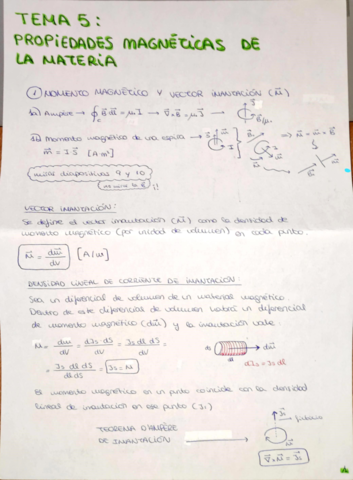 TEMA 5:
PROPIEDADES MAGNÉTICAS DE
LA MATERIA
① MOMENTO MAGNÉTICO Y VECTOR IMANTACIÓN (M⃗)
Ampère → ∮c B⃗ dl⃗ = μI → ∇⃗×B⃗ = μJ⃗ →
Momento magnético de una espira →
m⃗ = I·S⃗ [A·m²]
mirar diapositivas 9 y 10
VECTOR IMANTACIÓN:
Se define el vector imantación (M⃗) como la densidad de
momento magnético (por unidad de volumen) en cada punto.
M⃗ = dm⃗/dV [A/m]
DENSIDAD LINEAL DE CORRIENTE DE IMANTACIÓN
Sea un diferencial de volumen de un material magnético.
Dentro de este diferencial de volumen habrá un diferencial
de momento magnético (dm⃗) y la imantación vale
M = dm/dV = dIs dS/dV = Js dl dS/dV =
= Js dl dS/dl dS = Js = M
dm⃗
dl
dIs = Js dl
El momento magnético en un punto coincide con la densidad
lineal de imantación en ese punto (Js)
TEOREMA D'AMPÈRE
DE IMANTACIÓN
∇⃗×M⃗ = J⃗s